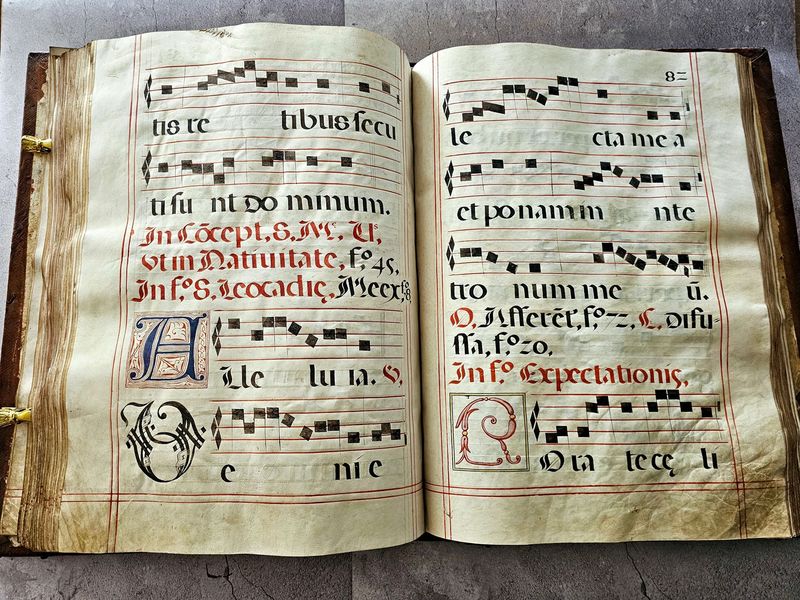 tis re tibus secu
ti su nt do minum.
In Cõcept, S. M, V,
Vt in Natiuitate, f.º 45,
In f.º S. Leocadię, Me ex, f.º 8
A
lle lu ia. V,
V
e ni e
82
le cta me a
et ponam in te
tro num me ũ.
O, Afferẽt, f.º 72, C, Difu-
ssa, f.º 20.
In f.º Expectationis,
R
Ora te cę li